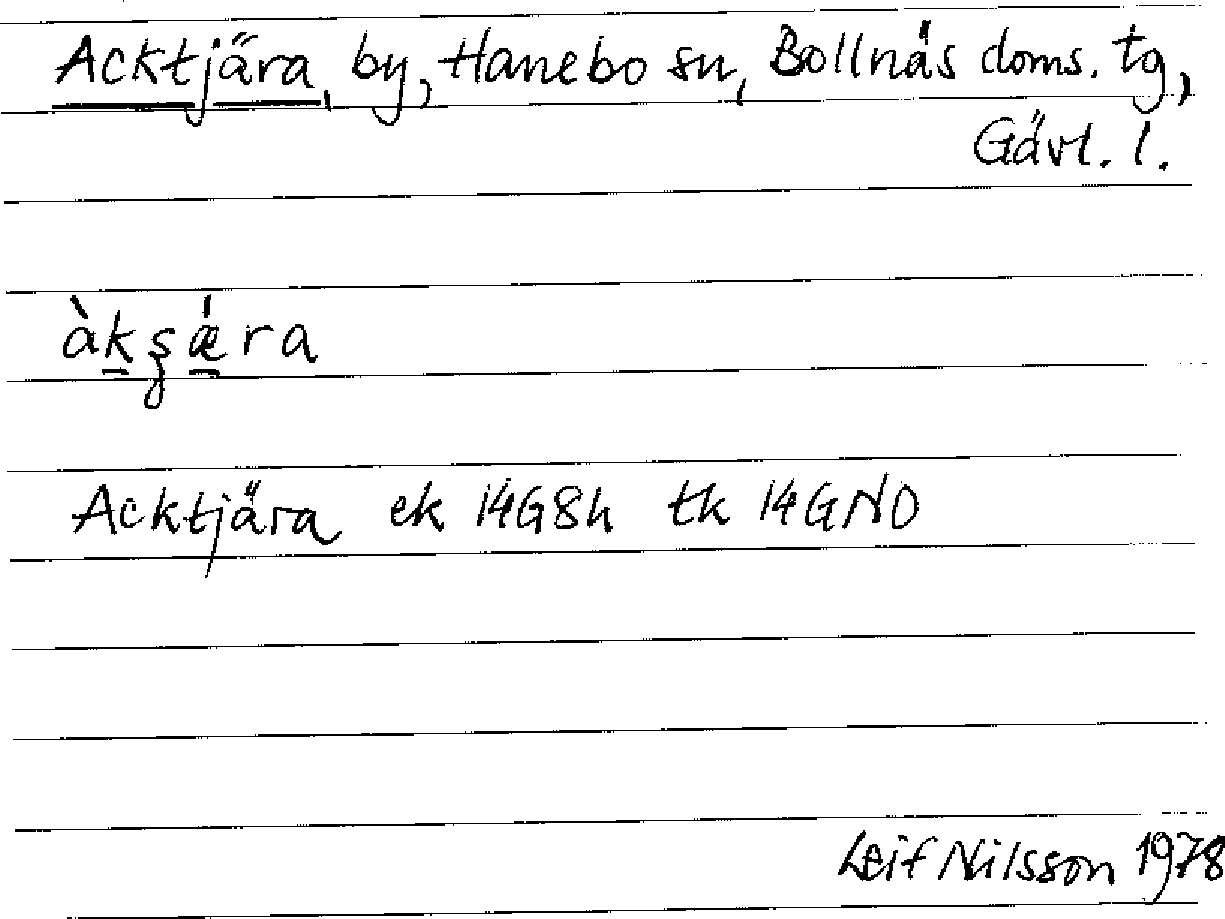 Acktjära, by, Hanebo sn, Bollnäs doms. tg,
Gävl. l.
àkʂǽra
Acktjära ek 14G8h tk 14GNO
Leif Nilsson 1978